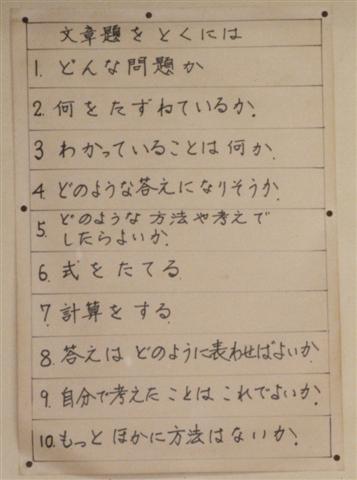 文章題をとくには
1. どんな問題か
2. 何をたずねているか.
3 わかっていることは何か.
4. どのような答えになりそうか.
5. どのような方法や考えで
したらよいか.
6. 式をたてる.
7. 計算をする.
8. 答えはどのように表わせばよいか.
9. 自分で考えたことはこれでよいか.
10. もっとほかに方法はないか.